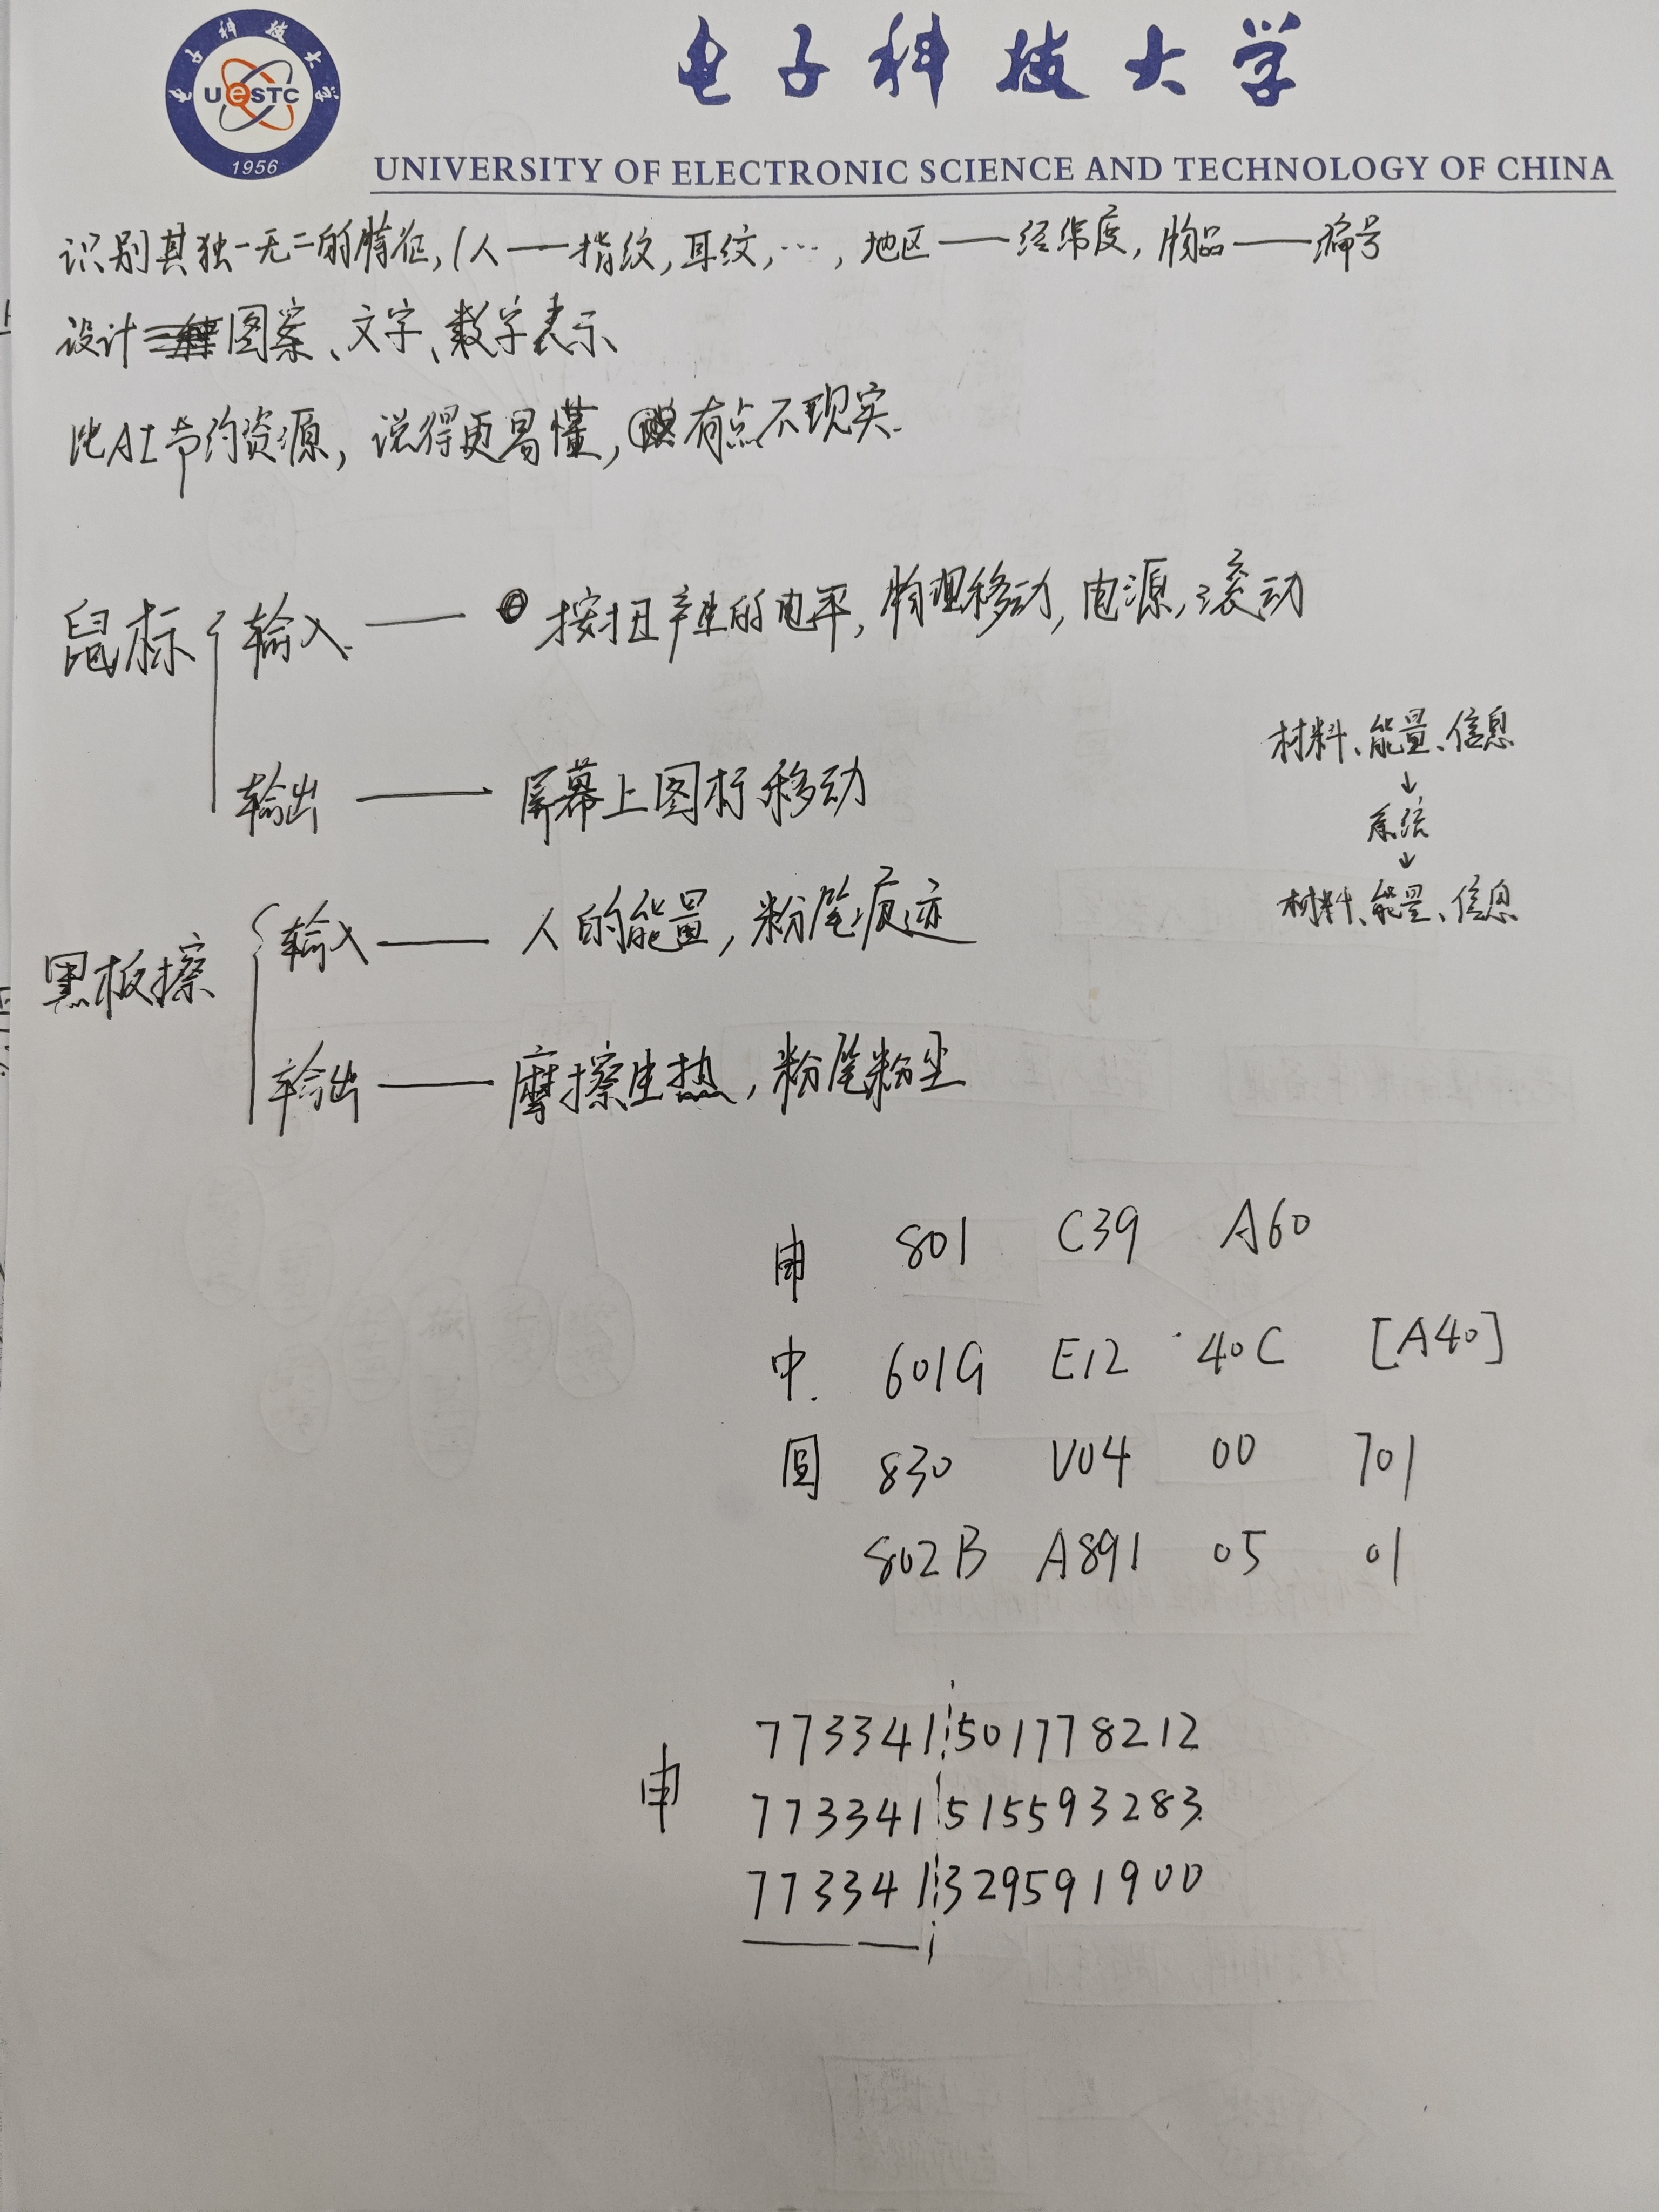 电子科技大学
UeSTC
1956
UNIVERSITY OF ELECTRONIC SCIENCE AND TECHNOLOGY OF CHINA
识别其独一无二的特征,(人——指纹,耳纹,…,地区——经纬度,物品——编号
设计图案、文字、数字表示
比AI节约资源,说得更易懂,有点不现实.
鼠标
输入——按扭产生的电平,物理移动,电源,滚动
输出——屏幕上图标移动
材料、能量、信息
↓
系统
↓
材料、能量、信息
黑板擦
输入——人的能量,粉笔痕迹
输出——摩擦生热,粉笔粉尘
申 801 C39 A60
中. 601G E12 40C [A40]
圆 830 V04 00 701
802B A891 05 01
申
773341501778212
773341515593283
773341329591900